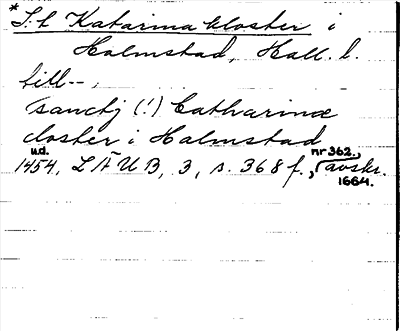 *S:t Katarina kloster i
Halmstad, Hall. l.
till--,
sanctj (!) Catharinæ
closter i Halmstad
u.d.
1454, LÄUB, 3, s. 368 f., nr 362., avskr.
1664.